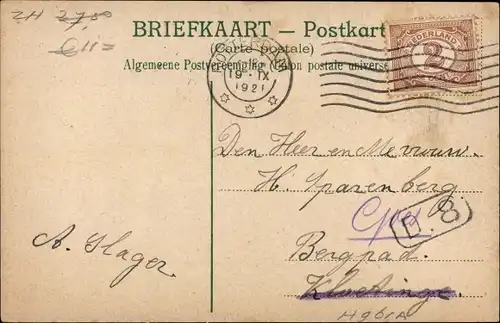 ZH
BRIEFKAART — Postkart
(Carte postale)
Algemeene Postvereeniging (Union postale universe
19 IX
1921
NEDERLAND
2
Den Heer en Mevrouw
H. Sparenberg
Goes
Bergpad.
Kloetinge.
A. Slager.